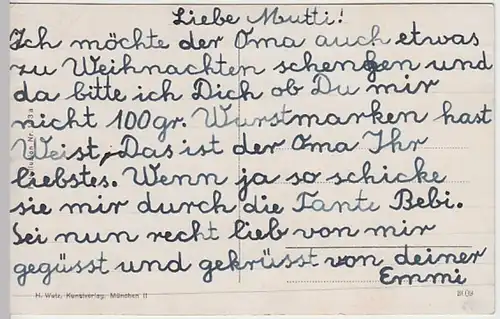 Liebe Mutti!
Ich möchte der Oma auch etwas
zu Weihnachten schenken und
da bitte ich Dich ob Du mir
nicht 100gr. Wurstmarken hast
Weist, Das ist der Oma Ihr
liebstes. Wenn ja so schicke
sie mir durch die Tante Bebi.
Sei nun recht lieb von mir
gegüsst und geküsst von deiner
Emmi
H. Wutz, Kunstverlag, München II